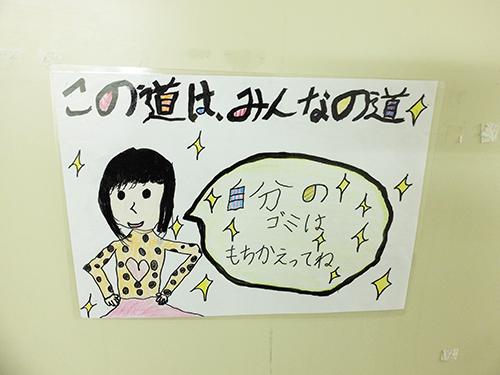 この道は、みんなの道
自分の
ゴミは
もちかえってね